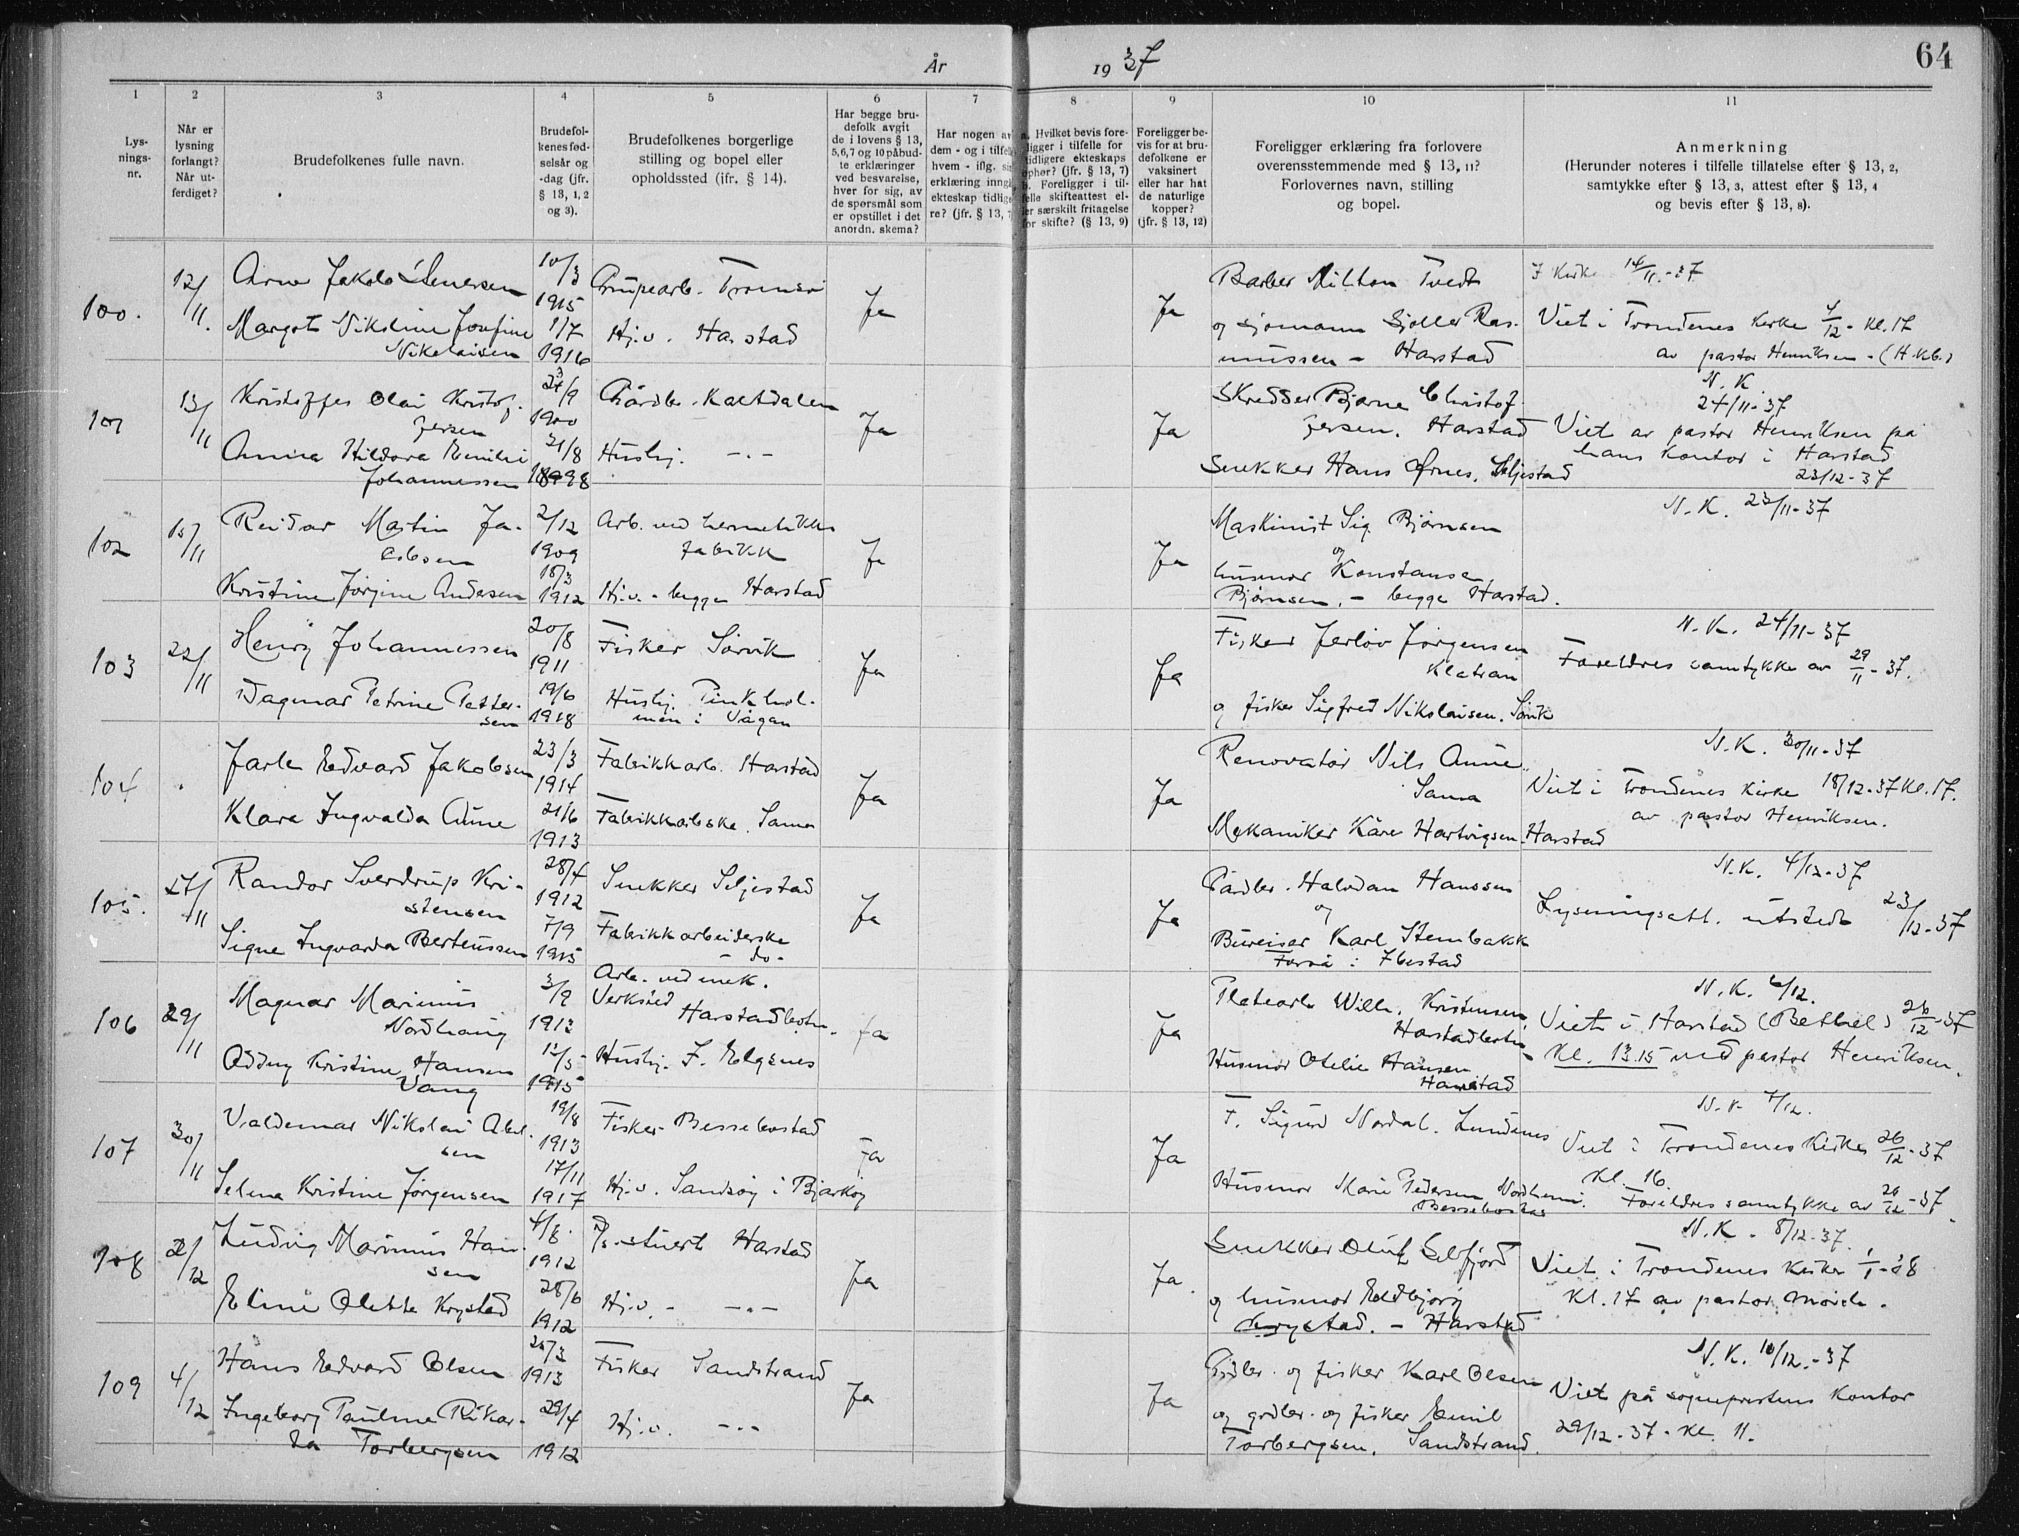 År 1937
64
1
2
3
4
5
6
7
8
9
10
11
Lys-
nings-
nr.
Når er
lysning
forlangt?
Når ut-
ferdiget?
Brudefolkenes fulle navn.
Brudefol-
kenes fød-
selsår og
-dag (jfr.
§ 13, 1, 2
og 3).
Brudefolkenes borgerlige
stilling og bopel eller
opholdssted (ifr. § 14).
Har begge bru-
defolk avgit
de i lovens § 13,
5,6,7 og 10 påbud-
te erklæringer
ved besvarelse,
hver for sig, av
de spørsmål som
er opstillet i det
anordn. skema?
Har nogen av
dem - og i tilfel
hvem - iflg. si
erklæring inngå
ekteskap tidlige
re? (jfr. § 13, 7
a. Hvilket bevis fore-
ligger i tilfelle for
tidligere ekteskaps
ophør? (jfr. § 13, 7)
b. Foreligger i til-
felle skifteattest el-
ler særskilt fritagelse
for skifte? (§ 13, 9)
Foreligger be-
vis for at bru-
defolkene er
vaksinert
eller har hat
de naturlige
kopper?
(jfr. § 13, 12)
Foreligger erklæring fra forlovere
overensstemmende med § 13, 11?
Forlovernes navn, stilling
og bopel.
Anmerkning
(Herunder noteres i tilfelle tillatelse efter § 13, 2,
samtykke efter § 13, 3, attest efter § 13, 4
og bevis efter § 13, 8).
100.
12/11.
Arne Jakob
10/3
1915
Grupearb. Tromsø
Margot Nikoline Josefine
Nikolaisen
1/7
1916
Hj.v. Harstad
Ja
Ja
Barber Milton Tvedt
og sjømann Sjoller Ras-
mussen - Harstad
I Kirke 14/11.-37
Viet i Trondenes Kirke 4/12- Kl.17
av pastor Henriksen - (H.kb.)
101
13/11
Kristoffer Olai Kristof-
fersen
9
1900
Gårdbr. Kaltdalen
Anna Hildora Emilie
Johannessen
21/8
1898
Husbj. -"-
Ja
Ja
Skredder Bjarne Christof-
fersen. Harstad
Snekker Hans Ørnes, Seljestad
N.K.
24/11-37
Viet av pastor Henriksen på
hans kontor i Harstad
23/12-37
102
15/11
Reidar Martin Ja-
cobsen
2/12
1909
Arb. ved hermetikk
fabrikk
Kristine Jørgine Andersen
18/3
1912
Hj.v. - begge Harstad
Ja
Ja
Maskinist Sig. Bjørnsen
og
husmor Konstanse
Bjørnsen, - begge Harstad.
N.K. 23/11-37
103
22/11
Henry Johannessen
20/8
1911
Fisker Sørvik
Dagmar Petrine Petter-
sen
19/6
1918
Husbj. Finkhol-
men i Vågan
Ja
Ja
Fisker Jerlov Jørgensen
Kletran
og fisker Sigfred Nikolaisen. Sørvik
N.K. 24/11-37
Foreldres samtykke av 29/11-37.
104
Jarle Edvard Jakobsen
23/3
1914
Fabrikkarb. Harstad
Klara Ingvalda Aune
21/6
1913
Fabrikkarbske. Sama
Ja
Ja
Renovatør Nils Aune
Sama
Mekaniker Kåre Hartvigsen. Harstad
N.K. 30/11-37
Viet i Trondenes Kirke 18/12-37 Kl.17.
av pastor Henriksen.
105.
27/11
Randor Sverdrup Kri-
stensen
28/4
1912
Snekker Seljestad
Signe Ingvarda Berteussen
7/9
1915
Fabrikkarbeiderske
- do -
Ja
Ja
Gårdbr. Halvdan Hanssen
og
Bureiser Karl Stenbakk
Forså i Ibestad
N.K. 4/12-37
Lysningsatt. utstedt 23/12-37
106
29/11
Magnar Marinius
Nordhaug
3/9
1912
Arb. ved mek.
Verksted
Harstadbotn.
Oddny Kristine Hansen
Vang
12/5
1915
Husbj. F. Elgsnes
Ja
Ja
Platearb. Willh. Kristensen,
Harstadbotn
Husmor Otelie Hansen
Harstad
N.K. 6/12.
Viet i Harstad (Bethel) 26/12-37
Kl. 13.15 ved pastor Henriksen.
107
30/11
Valdemar Nikolai Abel-
sen
19/8
1913
Fisker. Bessebostad
Selma Kristine Jørgensen
17/11
1917
Hj.v. Sandsøy i Bjarkøy
Ja
Ja
F. Sigurd Nordal. Lundenes
Husmor Marie Pedersen Nordheim.
Bessebostad
N.K 7/12.
Viet i Trondenes Kirke 26/12-37
Kl. 16.
Foreldres samtykke av 26/12-37.
108
2/12
Ludvig Marinius Han-
sen
4/8.
1912
stuert Harstad
Eline Olette Krystad
28/6
1912
Hj.v. - -"-
Ja
Ja.
Snekker Oluf Selfjord
og husmor Eldbjørg
Krystad. - Harstad
N.K. 8/12-37.
Viet i Trondenes Kirke 1/1-38
Kl.17 av pastor Mørch.
109
4/12
Hans Edvard Olsen
25/3
1913
Fisker Sandstrand
Ingeborg Pauline Rikar-
da Torbergsen
29/4
1912
Hj.v. -"-
Ja
Ja
Gårdbr. og fisker Karl Olsen
og grdbr. og fisker Emil
Torbergsen. Sandstrand.
N.K. 10/12.-37
Viet på sogneprestens kontor
29/12-37 - Kl. 11.